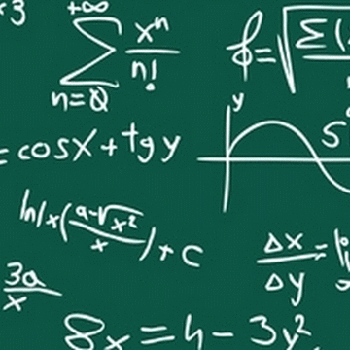 ×3
+∞
∑ xⁿ/n!
n=0
f=√Σ(
y
= cosx + tgy
S
ln|x(a-√x²/x)+c
Δx/Δy =
3a/x
8x = h - 3y²